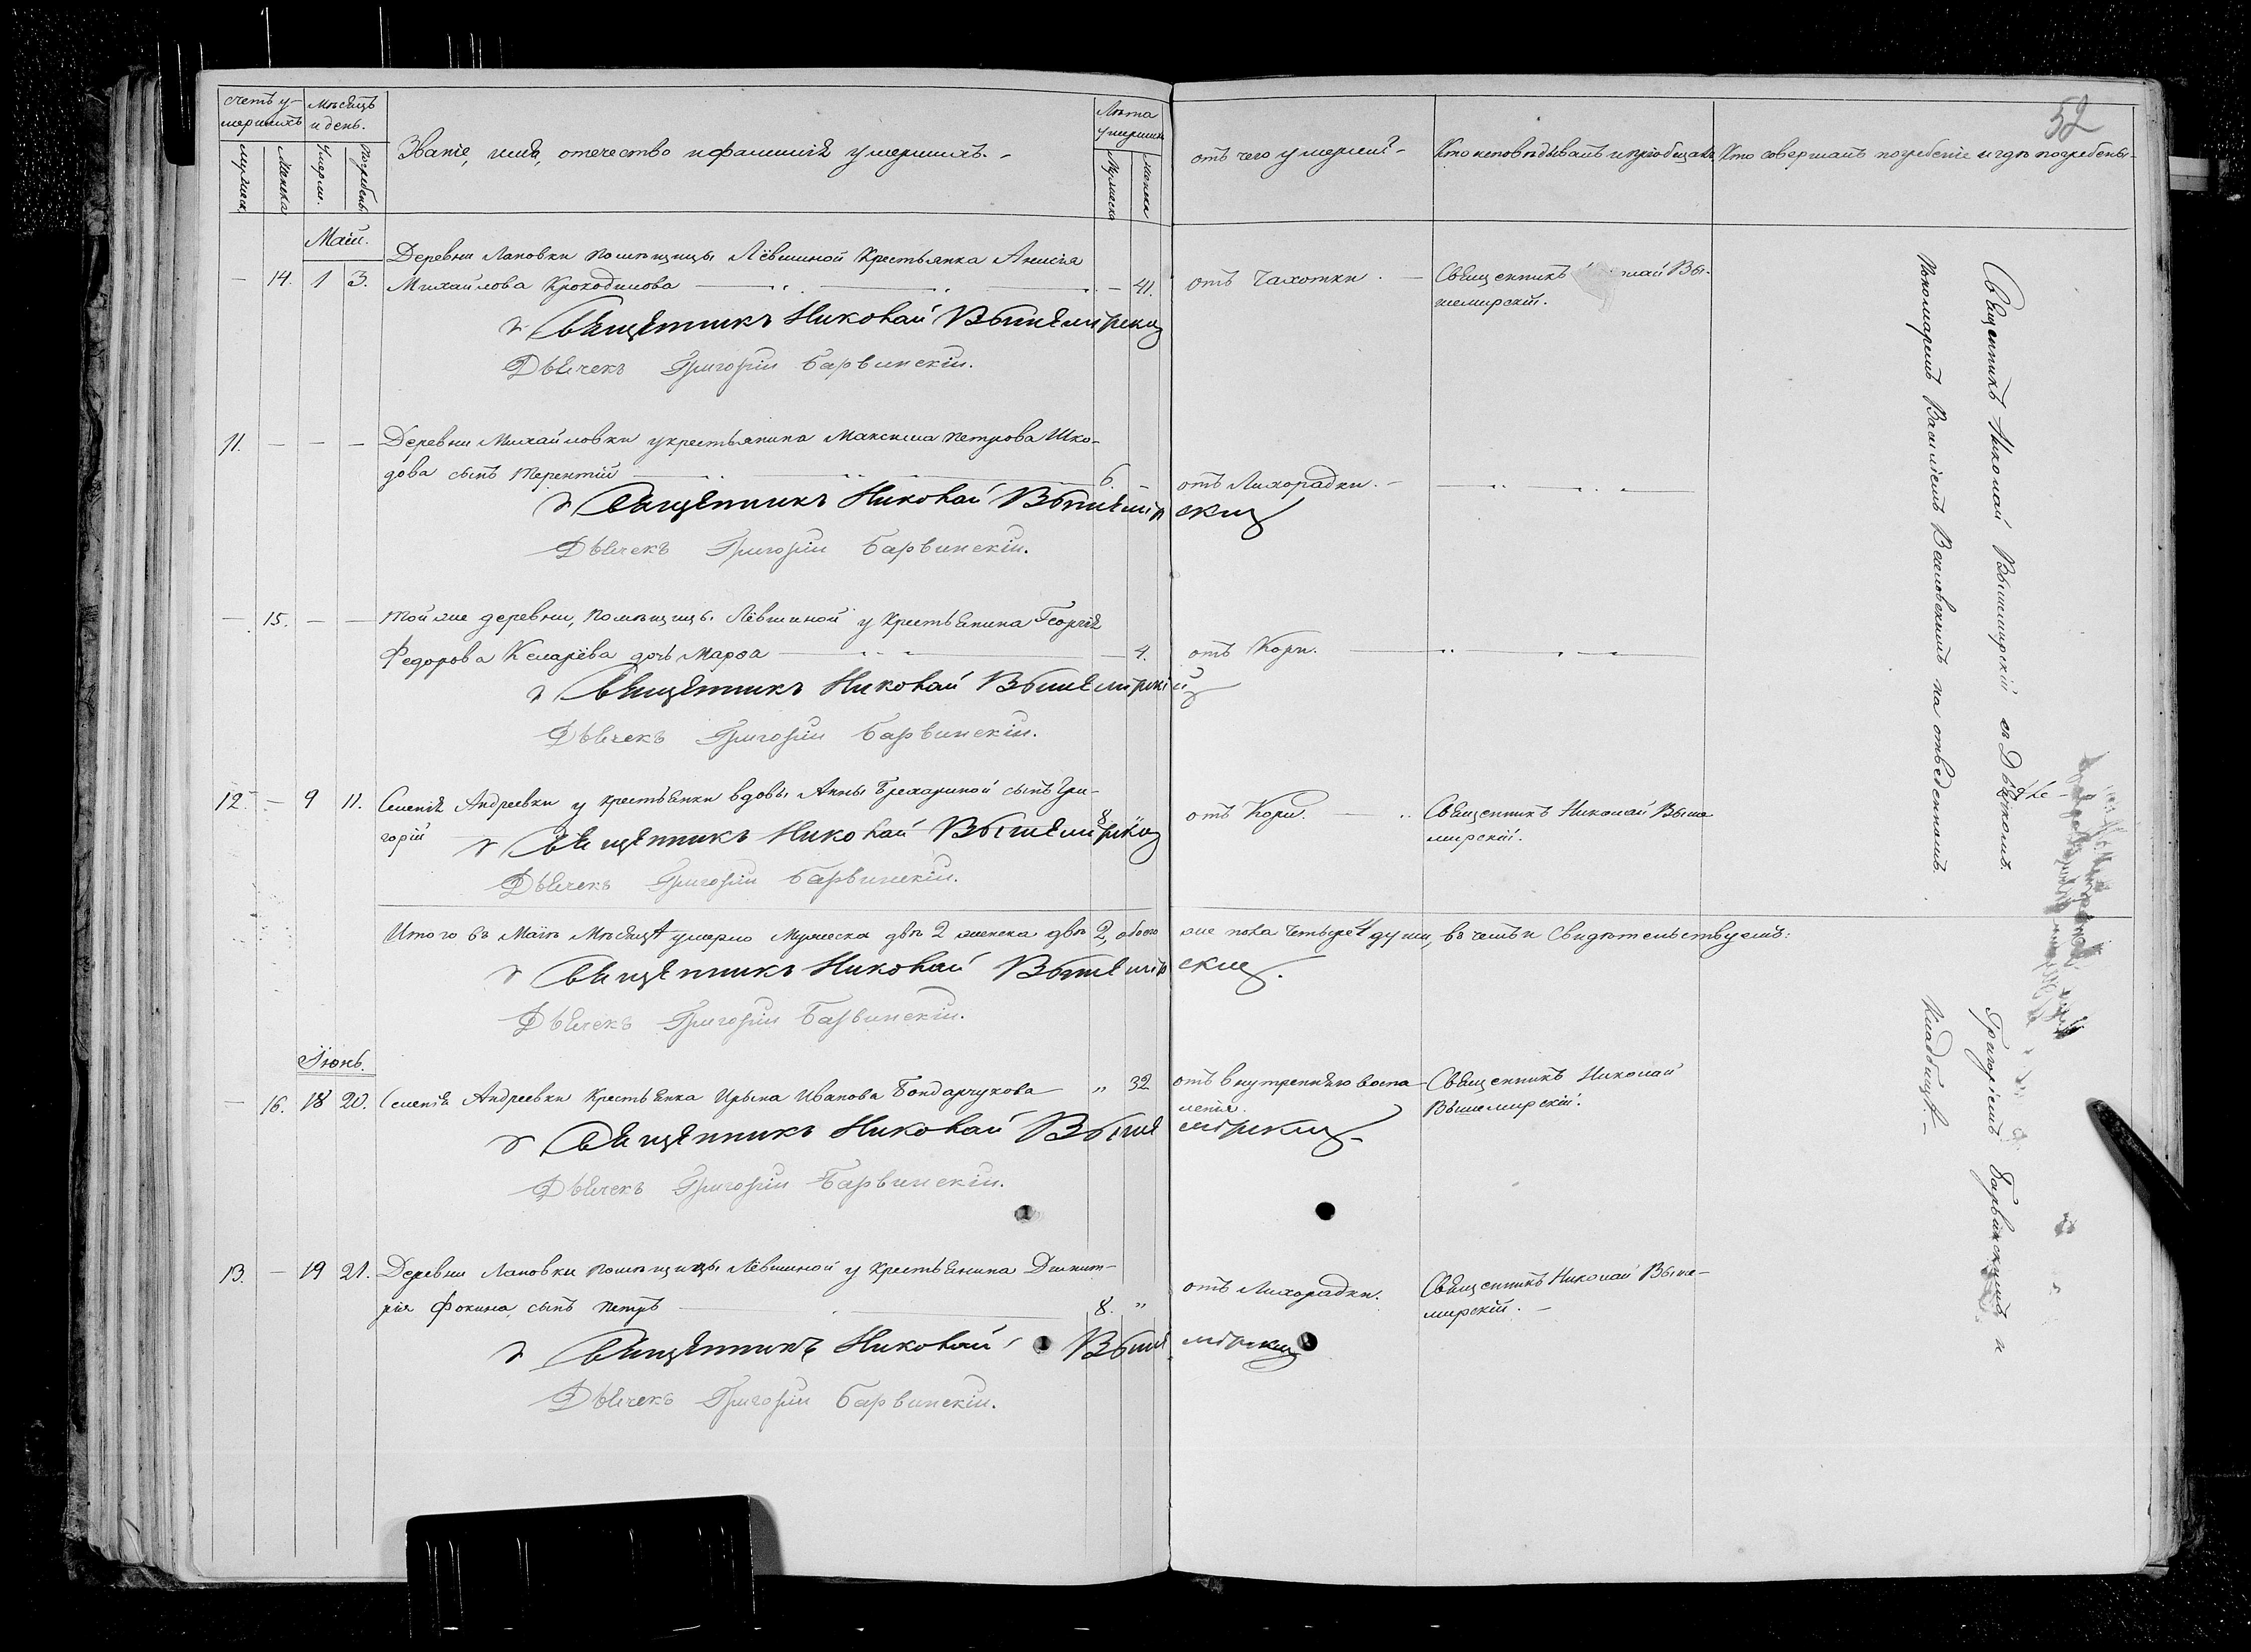 52
Счетъ у- Мѣсяцъ Лѣта
мершихъ и день. умерших
Званіе, имя, отечество и фамилія умершихъ. -
отъ чего умерли - Кто исповѣдывалъ и пріобщалъ Кто совершалъ погребеніе и гдѣ погребены -
Мужеска Женска Умерш. Погребены Мужеска Женска
Маій.
Деревни Лановки помѣщицы Лёвшиной крестьянка Анисія
— 14. 1 3. Михайлова Крокодилова — 41. отъ Чахотки. — Священникъ Николай Вы-
шемирскій.
Священникъ Николай Вышемирскій
Дьячекъ Григорій Барвинскій.
11. — — — Деревни Михайловки у крестьянина Максима Петрова Шко-
дова сынъ Терентій 6. — отъ Лихорадки. —
Священникъ Николай Вышемирскій
Дьячекъ Григорій Барвинскій.
— 15. — — Той же деревни, помѣщицы Лёвшиной у крестьянина Георгія
Федорова Келарёва дочь Марѳа — 4. отъ Кори.
Священникъ Николай Вышемирскій
Дьячекъ Григорій Барвинскій.
12. — 9 11. Селенія Андреевки у крестьянки вдовы Анны Брехариной сынъ Гри-
горій 8. отъ Кори. — Священникъ Николай Выше
мирскій.
Священникъ Николай Вышемирскій
Дьячекъ Григорій Барвинскій.
Итого въ Маіѣ Мѣсяцѣ умерло Мужеска двѣ 2 женска двѣ 2, обоего же пола четыре 4 души, въ чемъ и свидѣтельствуемъ:
Священникъ Николай Вышемирскій.
Дьячекъ Григорій Барвинскій.
Іюнь.
— 16. 18 20. Селенія Андреевки Крестьянка Ирына Иванова Бондарчукова „ 32 отъ внутренняго воспа- Священникъ Николай
ленія. Вышемирскій.
Священникъ Николай Вышемирскій
Дьячекъ Григорій Барвинскій.
13. — 19 21. Деревни Лановки помѣщицы Лёвшиной у крестьянина Димит-
рія Фокина, сынъ Петръ 8. „ отъ Лихорадки. Священникъ Николай Выше-
мирскій. —
Священникъ Николай Вышемирскій
Дьячекъ Григорій Барвинскій.
Священникъ Николай Вышемирскій съ Дьячкомъ Григоріемъ Барвинскимъ и
Пономаремъ Василіемъ на отведенномъ Кладбищѣ. —